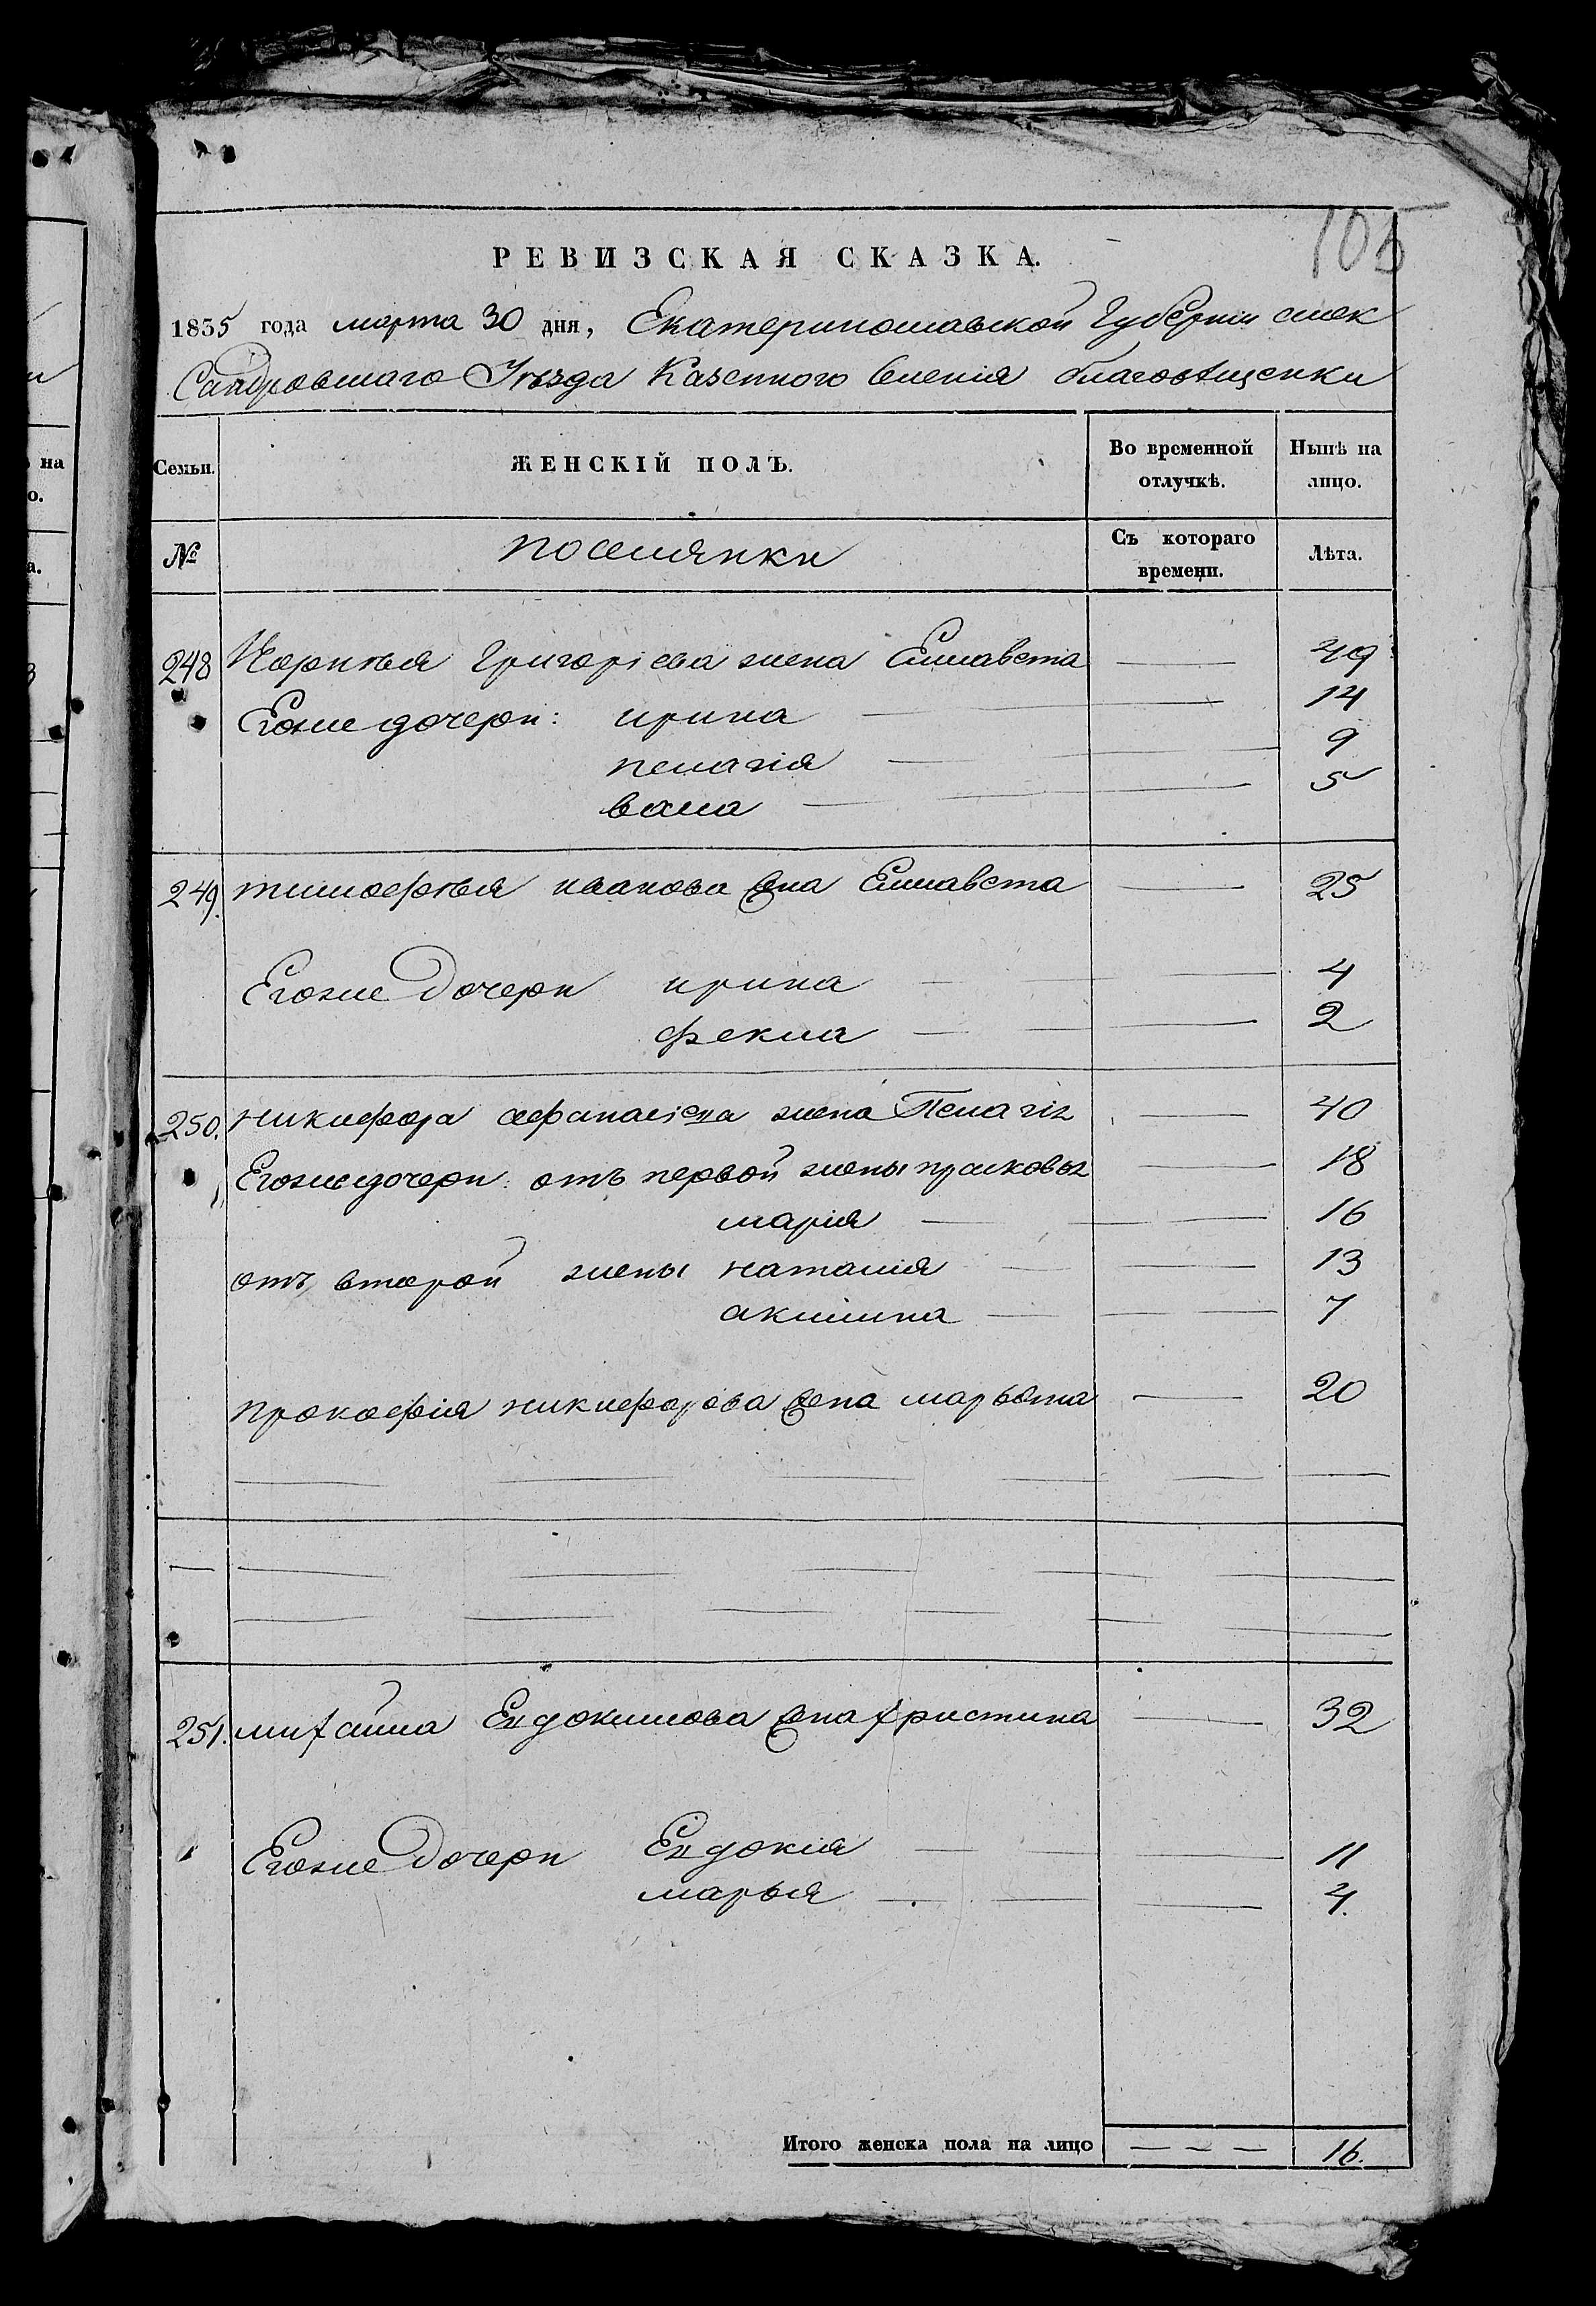 105
РЕВИЗСКАЯ СКАЗКА.
1835 года марта 30 дня, Екатеринославской Губернии алек
Сандровшаго Уѣзда Казенного Селенія благовѣщенки
Семьи. ЖЕНСКІЙ ПОЛЪ. Во временной отлучкѣ. Нынѣ на лицо.
№ поселянки Съ котораго времени. Лѣта.
248 Корнѣя Григоріева жена Елисавета — 49
Егоже дочери: ирина — 14
пелагія — 9
васа — 5
249. тимофѣя иванова жена Елисавета — 25
Егоже Дочери ирина — 4
фекла — 2
250. никифора афанасіева жена Пелагія — 40
Егоже дочери: отъ первой жены прасковья — 18
марія — 16
отъ второй жены наталия — 13
акилина — 7
прокофія никифорова жена марѳта — 20
251. михайла Евдокимова жена христина — 32
Егоже Дочери Евдокия — 11
марья — 4.
Итого женска пола на лицо — — — 16.
на
о.
а.